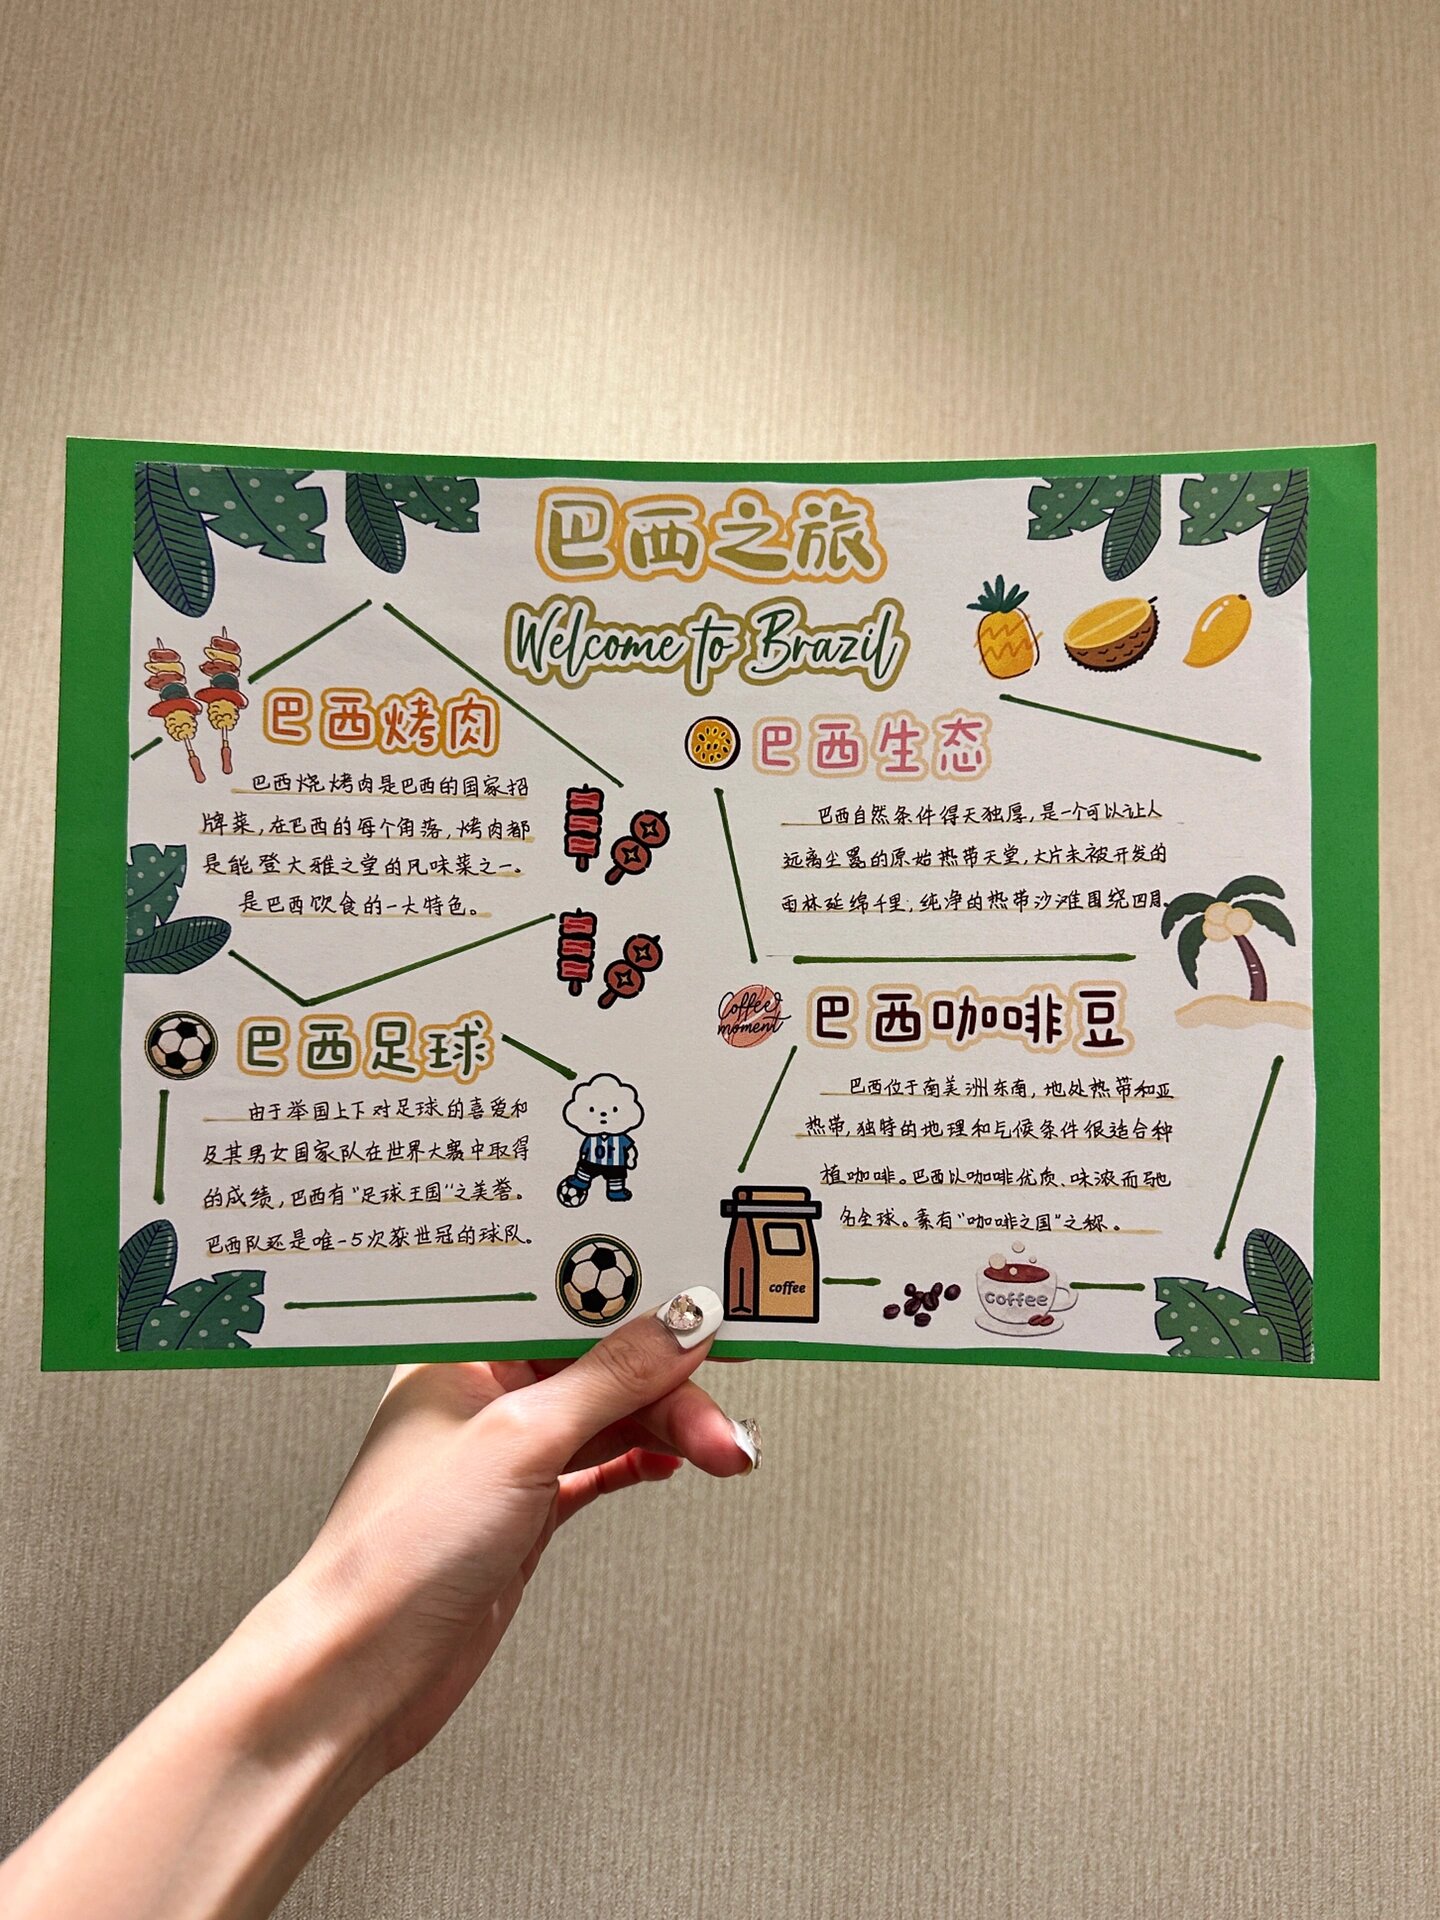 巴西之旅
Welcome to Brazil
巴西烤肉
巴西烧烤肉是巴西的国家招
牌菜,在巴西的每个角落,烤肉都
是能登大雅之堂的风味菜之一。
是巴西饮食的一大特色。
巴西生态
巴西自然条件得天独厚,是一个可以让人
远离尘嚣的原始热带天堂,大片未被开发的
雨林延绵千里,纯净的热带沙滩围绕四周。
巴西足球
由于举国上下对足球的喜爱和
及其男女国家队在世界大赛中取得
的成绩,巴西有"足球王国"之美誉。
巴西队还是唯一5次获世冠的球队。
Coffee
moment
巴西咖啡豆
巴西位于南美洲东南,地处热带和亚
热带,独特的地理和气候条件很适合种
植咖啡。巴西以咖啡优质、味浓而驰
名全球。素有"咖啡之国"之称。
coffee
coffee